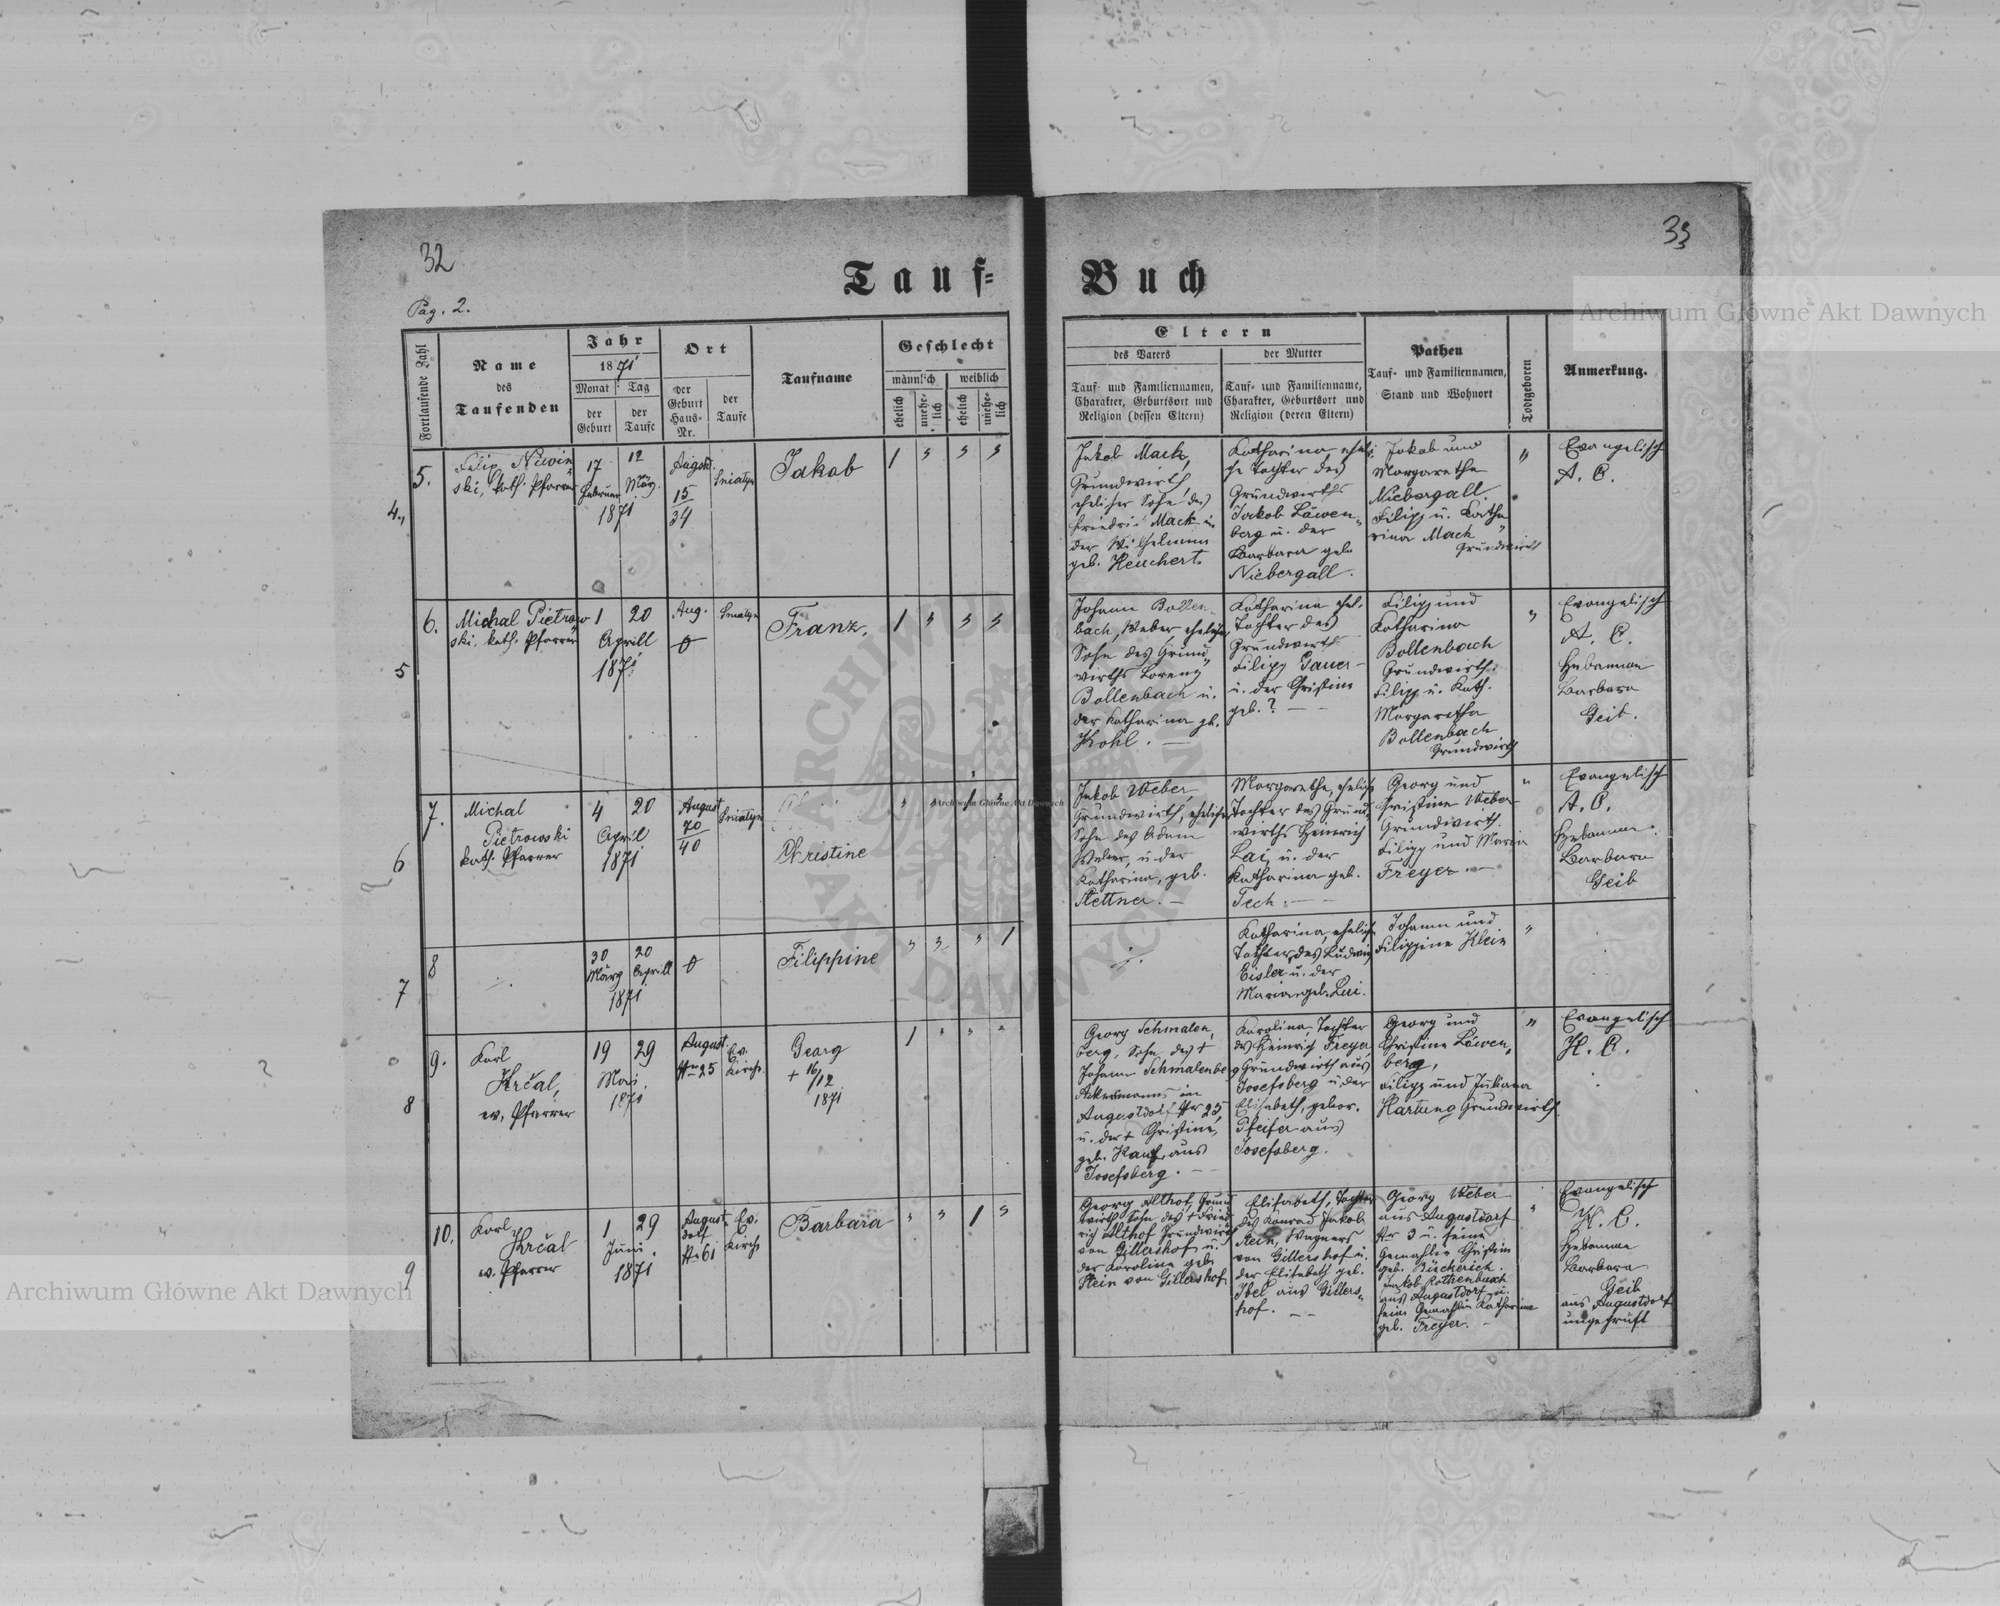 32
33
Tauf=
Buch
Pag. 2.
Archiwum Główne Akt Dawnych
Fortlaufende Zahl
Name
des
Taufenden
Jahr
1871
Monat
Tag
der
Geburt
der
Taufe
Ort
der
Geburt
Haus-
Nr.
der
Taufe
Taufname
Geschlecht
männlich
weiblich
ehelich
unehe-
lich
ehelich
unehe-
lich
Eltern
des Vaters
der Mutter
Tauf- und Familiennamen,
Charakter, Geburtsort und
Religion (dessen Eltern)
Tauf- und Familienname,
Charakter, Geburtsort und
Religion (deren Eltern)
Pathen
Tauf- und Familiennamen,
Stand und Wohnort
Todtgeboren
Anmerkung.
4.
5.
Filip Niwin
ski, kath. Pfarrer
17
Februar
12
März.
1871
August.
15
34
Sniatyn
Jakob
1
Jakob Mack,
Grundwirth,
ehelicher Sohn des
Friedri Mack u.
der Wilhelmina
geb. Heuchert.
Katharina eheli
che Tochter des
Grundwirths
Jakob Läwen
berg u. der
Barbara geb.
Niebergall.
Jakob und
Margaretha
Niebergall.
Filipp u. Katha
rina Mack
Grundwirth
Evangelisch
A. C.
5
6.
Michal Pietrow
ski, kath. Pfarrer
1
20
Aprill
1871
Aug.
Sniatyn
Franz.
1
Johann Bollen
bach, Weber, ehelicher
Sohn des Grund
wirths Lorenz
Bollenbach u.
der Katharina gb.
Kohl.
Katharina ehel.
Tochter des
Grundwirths
Filipp Gauer
u. der Christine
geb. ?
Filipp und
Katharina
Bollenbach
Grundwirth.
Filipp u. Kath.
Margaretha
Bollenbach
Grundwirth
Evangelisch
A. C.
Hebamme
Barbara
Geib.
6
7.
Michal
Pietrowski
kath. Pfarrer
4
20
April
1871
August
70
40
Sniatyn
Christine
1
Jakob Weber,
Grundwirth, ehelicher
Sohn des Adam
Weber, u. der
Katharina, geb.
Stettner.
Margaretha, eheliche
Tochter des Grund
wirths Heinrich
Lai, u. der
Katharina geb.
Tech.
Georg und
Christine Weber
Grundwirth.
Filipp und Maria
Freyer.
Evangelisch
A. C.
Hebamme.
Barbara
Geib
7
8
30
März
20
Aprill
1871
Filippine
1
Katharina, eheliche
Tochter des Ludwig
Eisler u. der
Maria geb. Lui.
Johann und
Filippine Klein
8
9.
Karl
Krčal,
ev. Pfarrer
19
29
Mai.
1871
August
Nr 25
Ev.
Kirche.
Georg
+ 16/12
1871
1
Georg Schmalen
berg, Sohn des +
Johann Schmalenberg
Ackermanns in
Augustdorf Nr 25
u. der + Christine,
geb. Kauf, aus
Josefsberg.
Karolina, Tochter
des Heinrich Freyer,
Grundwirth aus
Josefsberg u. der
Elisabeth, gebor.
Pfeifer aus
Josefsberg.
Georg und
Christine Löwen
berg,
Filipp und Juliana
Hartung Grundwirth
Evangelisch
H. C.
9
10.
Karl
Krčal
ev. Pfarrer
1
29
Juni.
1871
August
dorf
Nr 61
Ev.
Kirche
Barbara
1
Georg Althof, Grund
wirth Sohn des + Fried
rich Althof Grundwirth
von Gillershof u.
der Karoline geb.
Stein von Gillershof.
Elisabeth, Tochter
des Konrad Jakob
Stein, Wagners
von Gillershof u.
der Elisabeth geb.
Ibel aus Gillers
hof.
Georg Weber
aus Augustdorf
Nr 3 u. seine
Gemahlin Christine
geb. Bücherich.
Jakob Rothenbusch
aus Augustdorf u.
seine Gemahlin Katharina
geb. Freyer.
Evangelisch
H. C.
Hebamme
Barbara
Geib
aus Augustdorf
ungeprüft
Archiwum Główne Akt Dawnych
Archiwum Główne Akt Dawnych